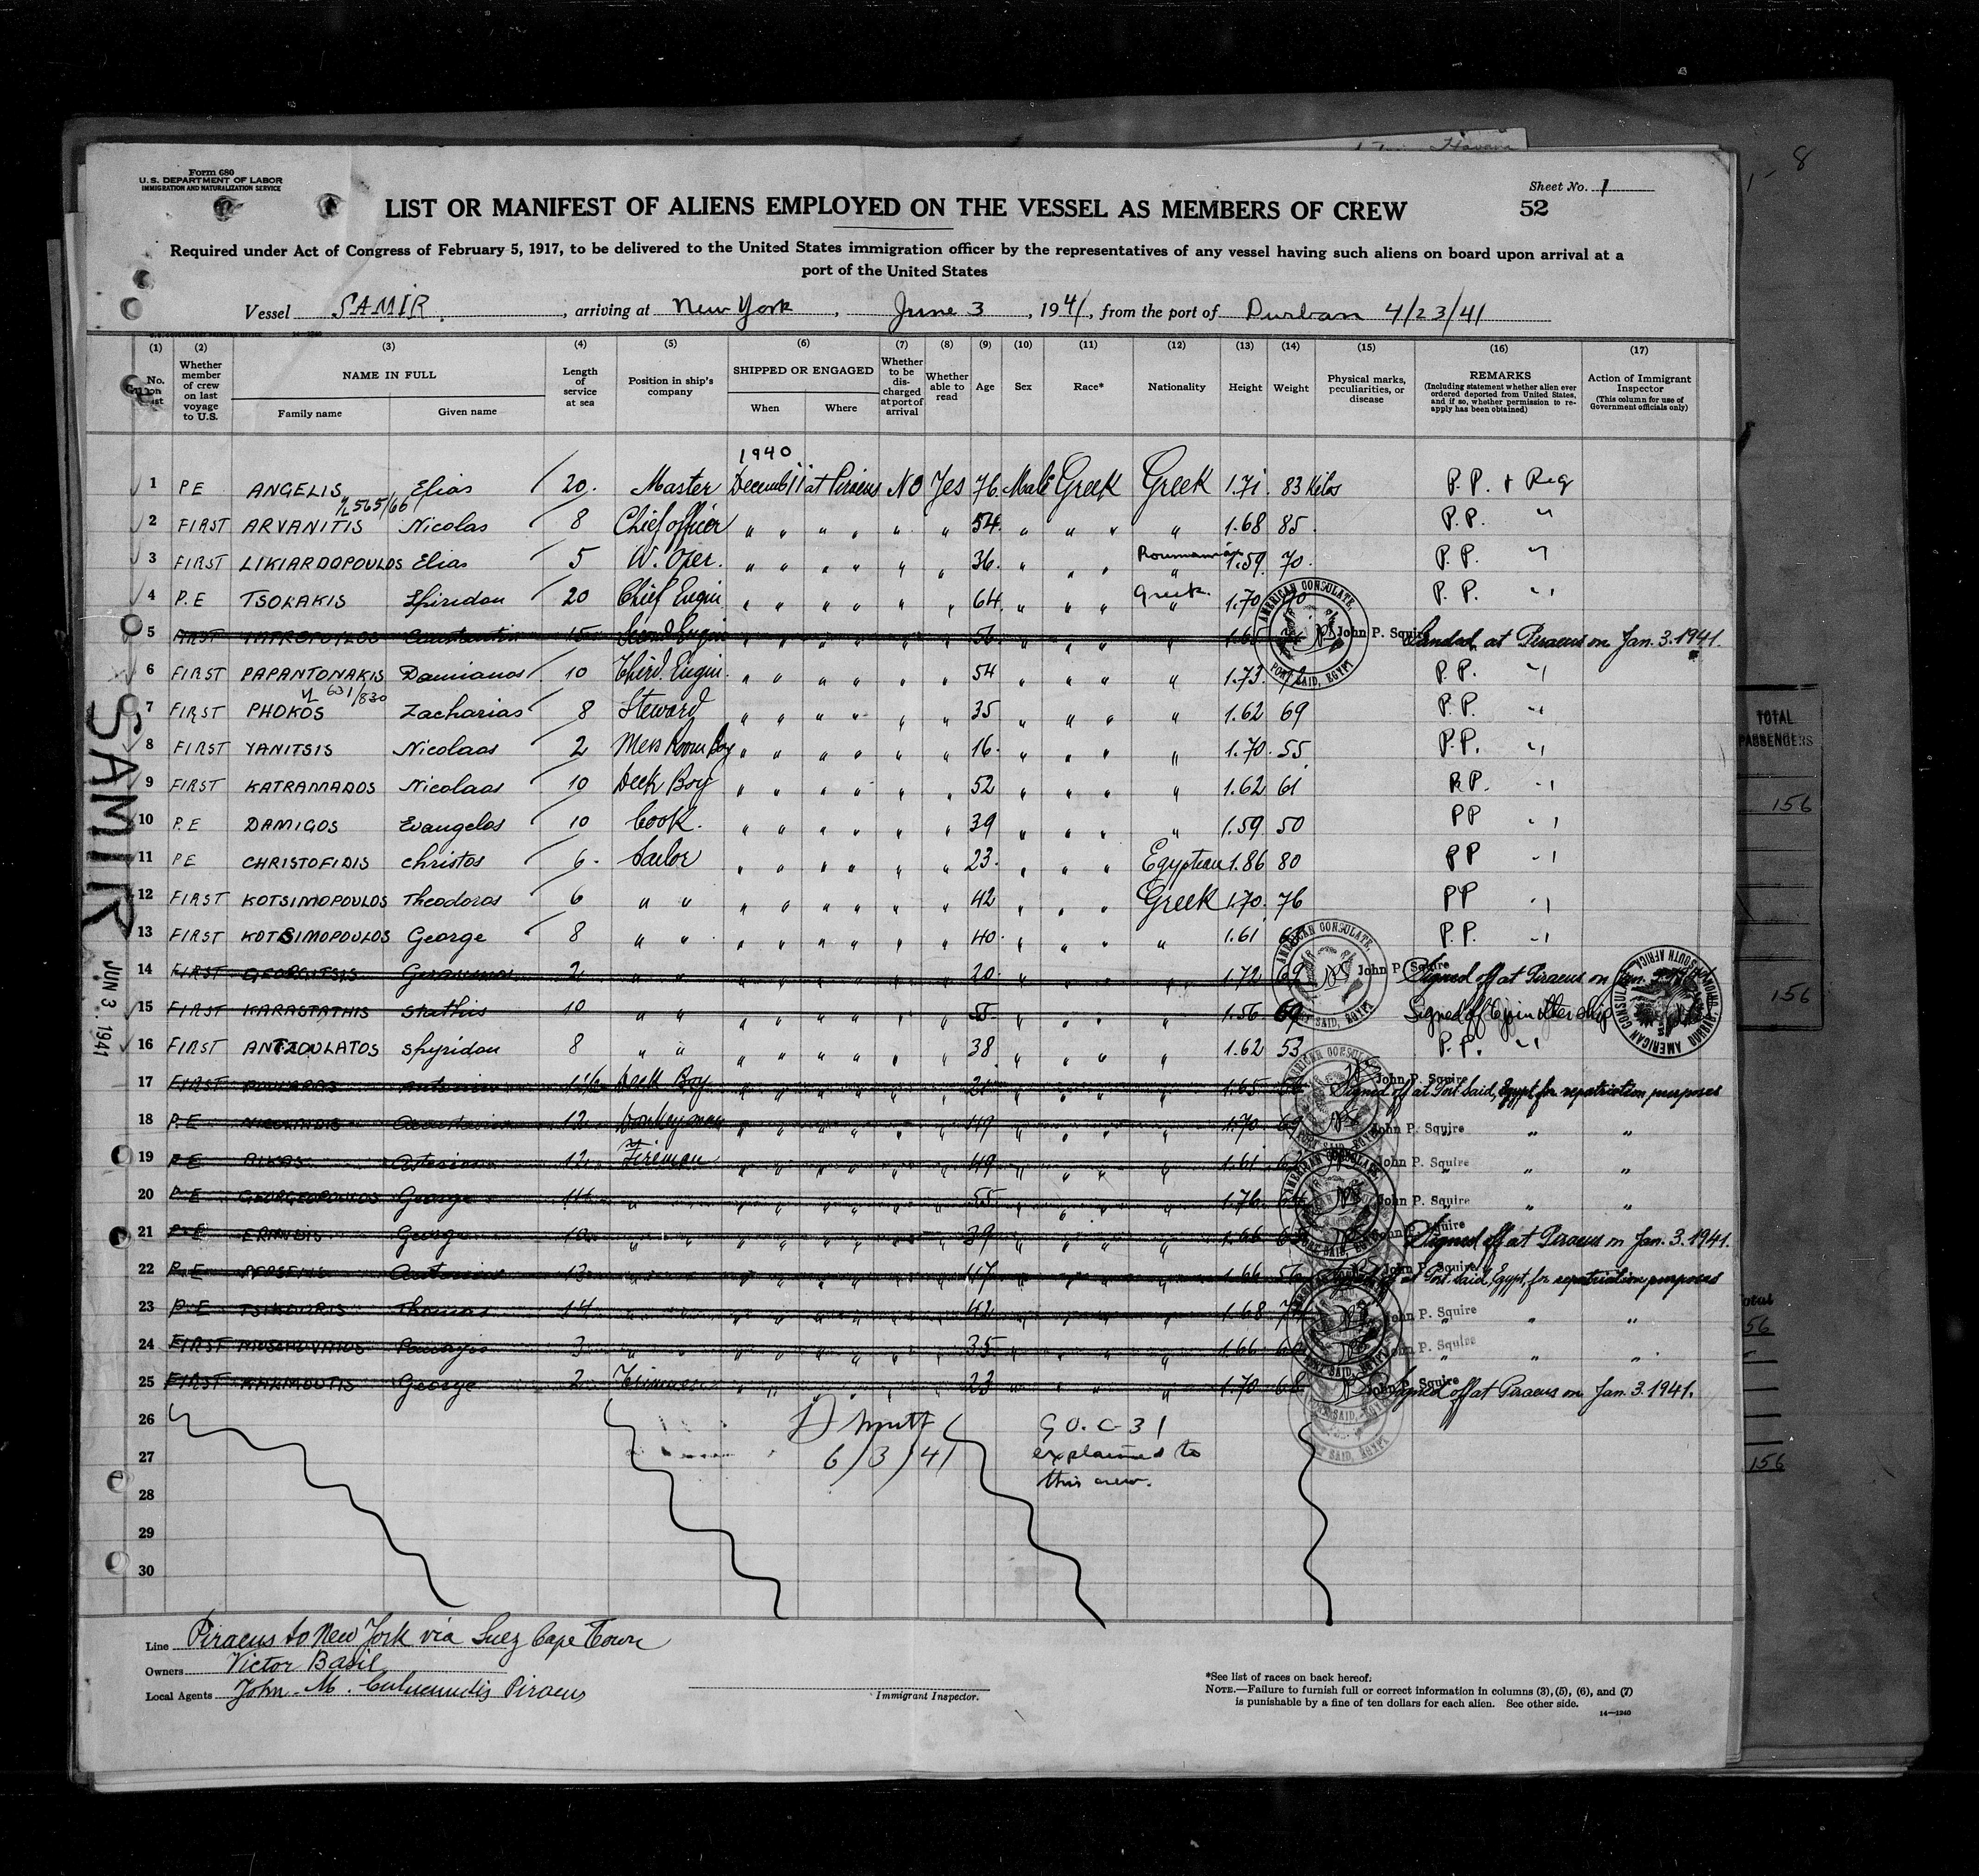 Form 680
U.S. DEPARTMENT OF LABOR
IMMIGRATION AND NATURALIZATION SERVICE
Sheet No. 1
52
LIST OR MANIFEST OF ALIENS EMPLOYED ON THE VESSEL AS MEMBERS OF CREW
Required under Act of Congress of February 5, 1917, to be delivered to the United States immigration officer by the representatives of any vessel having such aliens on board upon arrival at a
port of the United States
Vessel SAMIR, arriving at New York, June 3, 1941, from the port of Durban 4/23/41
(1) (2) (3) (4) (5) (6) (7) (8) (9) (10) (11) (12) (13) (14) (15) (16) (17)
No. on list
Whether member of crew on last voyage to U.S.
NAME IN FULL
Family name
Given name
Length of service at sea
Position in ship's company
SHIPPED OR ENGAGED
When
Where
Whether to be discharged at port of arrival
Whether able to read
Age
Sex
Race*
Nationality
Height
Weight
Physical marks, peculiarities, or disease
REMARKS
(Including statement whether alien ever ordered deported from United States, and if so, whether permission to reapply has been obtained)
Action of Immigrant Inspector
(This column for use of Government officials only)
1940
1 PE ANGELIS Elias 20. Master Decemb 11 at Piraeus NO Yes 76 Male Greek Greek 1.71. 83 Kilos P.P. + Reg
565/66
2 FIRST ARVANITIS Nicolas 8 Chief officer " " " " " " 54 " " " " 1.68 85. P.P. "
3 FIRST LIKIARDOPOULOS Elias 5 W. Oper. " " " " " " 36. " " " Roumanian 1.59. 70. P.P. "
4 P.E TSOKAKIS Spiridon 20 Chief Engin " " " " " " 64. " " " Greek. 1.70 P.P. "
5 FIRST Constantin 15 Second Engin " " " " " " 56. " " " " 1.65 John P. Squire Landed at Piraeus on Jan. 3. 1941.
6 FIRST PAPANTONAKIS Damianos 10 Third. Engin. " " " " " " 54 " " " " 1.73. P.P. "
631/830
7 FIRST PHOKOS Zacharias 8 Steward " " " " " " 35 " " " " 1.62 69 P.P. "
8 FIRST YANITSIS Nicolaos 2 Mess Room Boy " " " " " " 16. " " " " 1.70. 55. P.P. "
9 FIRST KATRAMADOS Nicolaos 10 Deck Boy " " " " " " 52 " " " " 1.62 61 P.P. "
10 P.E DAMIGOS Evangelos 10 Cook. " " " " " " 39 " " " " 1.59. 50 PP "
11 PE CHRISTOFIDIS Christos 6. Sailor " " " " " " 23. " " " Egyptian 1.86 80 PP "
12 FIRST KOTSIMOPOULOS Theodoros 6 " " " " " " " " 42 " " " Greek 1.70. 76 PP "
13 FIRST KOTSIMOPOULOS George 8 " " " " " " " " 40. " " " " 1.61 P.P. "
14 FIRST Gerasimos 2 " " " " " " " " 20. " " " " 1.72 69 John P. Squire Signed off at Piraeus on Jan.
15 FIRST KARASTATHIS Stathis 10 " " " " " " " " " " " " 1.56 69 Signed off
16 FIRST ANTZOULATOS Spyridon 8 " " " " " " " " 38. " " " " 1.62 53 P.P. "
17 FIRST Deck Boy " " " " " " 21. " " " " 1.65 John P. Squire Signed off at Port Said, Egypt for repatriation purposes
18 P.E NICOLAIDIS 12 Donkeyman " " " " " " 49 " " " " 1.70 69 John P. Squire " " "
19 P.E 12. Fireman " " " " " " 49 " " " " 1.61 John P. Squire " " "
20 P.E GEORGEOPOULOS George " " " " " " " 55 " " " " 1.76 John P. Squire " " "
21 P.E George 10. " " " " " " " 39 " " " " 1.66 John P. Squire Signed off at Piraeus on Jan. 3. 1941.
22 P.E Antonios 13 " " " " " " " 47 " " " " 1.66 56 John P. Squire at Port Said, Egypt, for repatriation purposes
23 P.E TSIKOURIS Thomas 14 " " " " " " " 42 " " " " 1.68 John P. Squire " " "
24 FIRST Panagis 3 " " " " " " " 35 " " " " 1.66 John P. Squire " " "
25 FIRST George 2 " " " " " " 23 " " " " 1.70 68 John P. Squire Signed off at Piraeus on Jan. 3. 1941.
26
27
28
29
30
6/3/41
G.O. C-31
explained to
this crew.
AMERICAN CONSULATE,
PORT SAID, EGYPT
SAMIR
JUN 3 1941
Line Piraeus to New York via Suez Cape Town
Owners Victor Basil
Local Agents John M. Piraeus
Immigrant Inspector.
*See list of races on back hereof.
NOTE.—Failure to furnish full or correct information in columns (3), (5), (6), and (7)
is punishable by a fine of ten dollars for each alien. See other side.
14—1240
8
TOTAL
PASSENGERS
156
156
Total
156